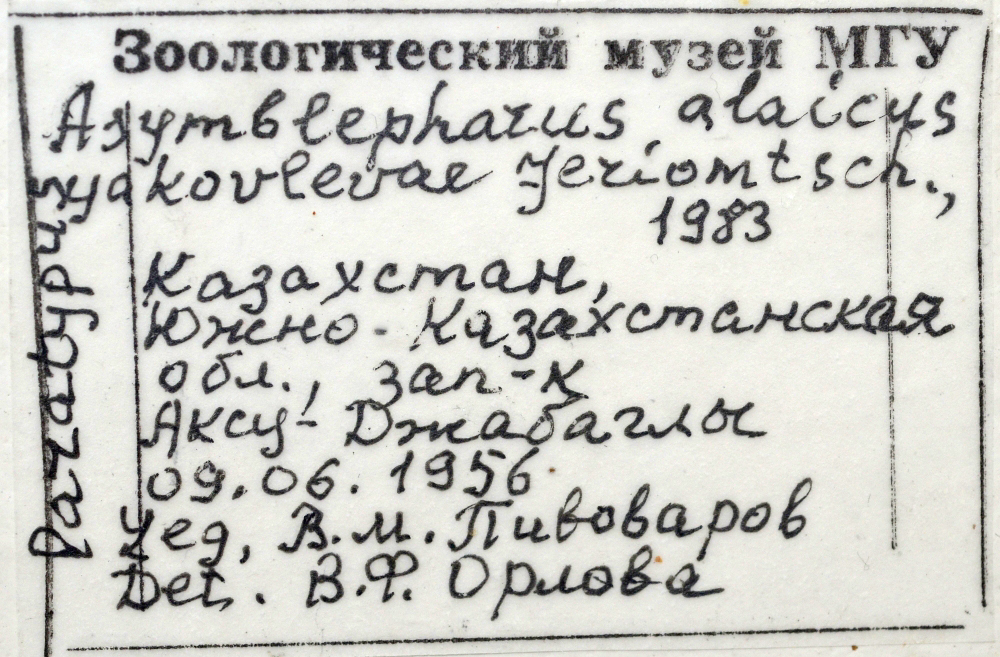 Зоологический музей МГУ
Asymblepharus alaicus
yakovlevae Jeriomtsch.,
1983
Казахстан,
Южно-Казахстанская
обл., зап-к
Аксу-Джабаглы
09.06.1956
Leg. В.М. Пивоваров
Det. В.Ф. Орлова
Paratypus